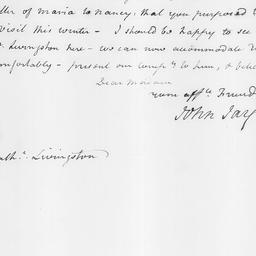 of maria to nancy, that you purposed
visit this winter - I should be happy to see
Livingston here - we can now accommodate
present our compts to him, &
Dear Madam
your affte Friend
John Jay
Livingston